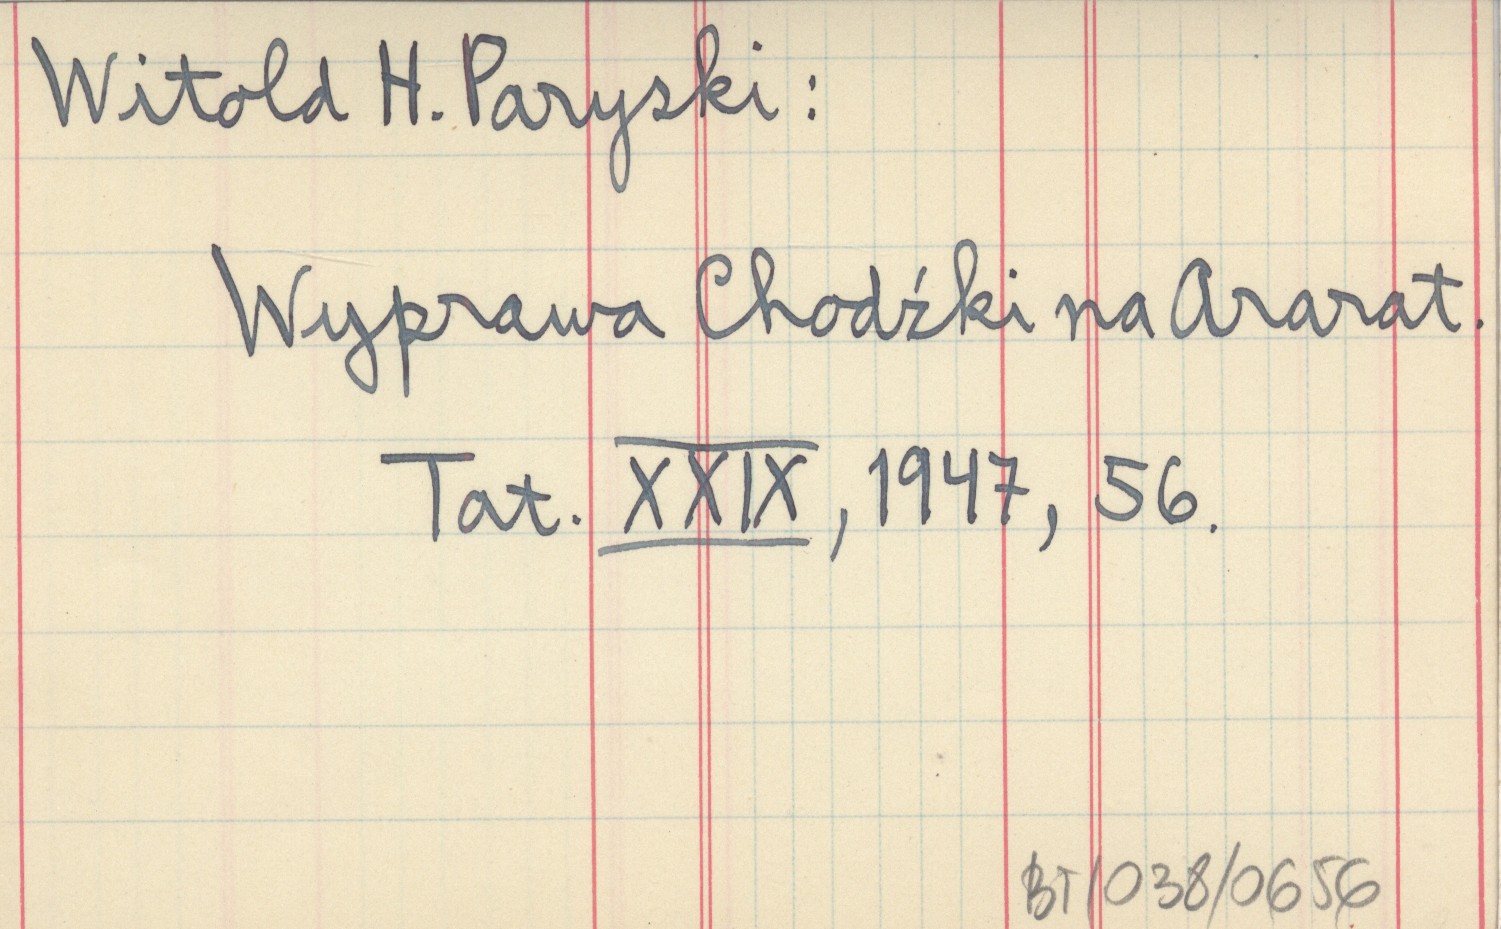 Witold H. Paryski:
Wyprawa Chodźki na Ararat.
Tat. XXIX, 1947, 56.
BT/038/0656